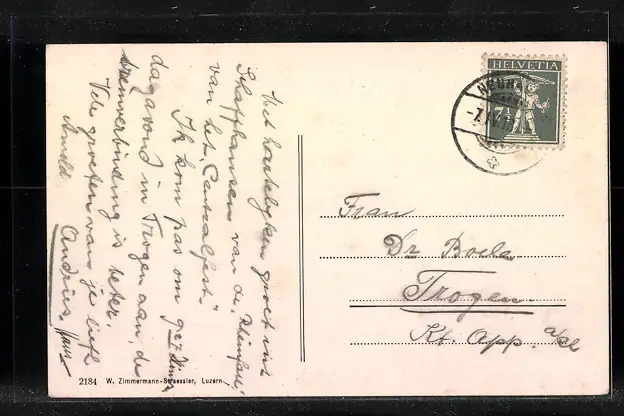 Met hartelyken groet uit
Schaffhausen van de Rheinfall,
van het "Cantonalfest".
Ik kom pas om 9 27 Dinsdagavond
in Trogen aan, de
treinverbinding is beter.
Vele groeten van je liefh.
Andries.
HELVETIA
7½
Frau
Dr Boele
Trogen
Kt. App. a/Rh
2184 W. Zimmermann-Straessler, Luzern.